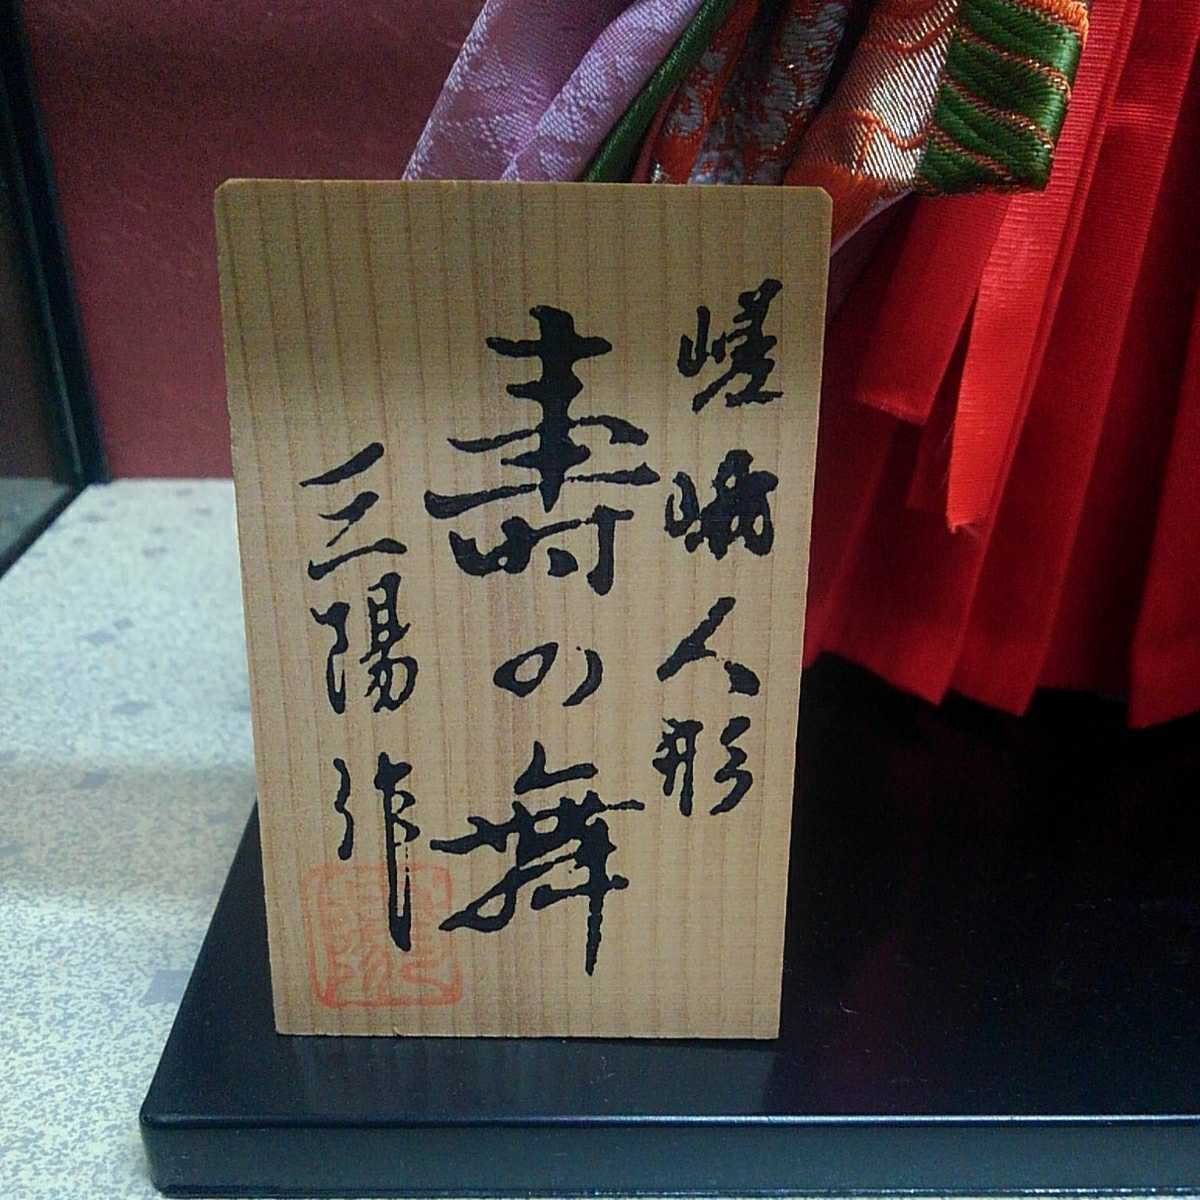 嵯峨人形
寿の舞
三陽作